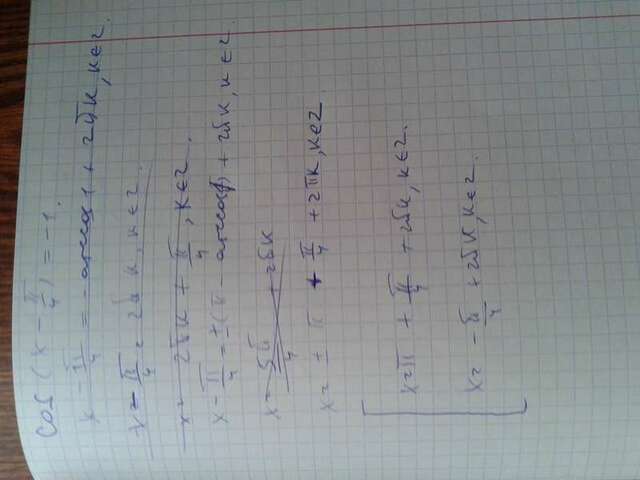 cos(x - π/4) = -1.
x - π/4 = - arccos 1 + 2πk, k∈Z.
x - π/4 = 2πk, k∈Z.
x = 2πk + π/4, k∈Z.
x - π/4 = ±(π - arccos 1) + 2πk, k∈Z.
x = 5π/4 + 2πk
x = ± π + π/4 + 2πk, k∈Z
x = π + π/4 + 2πk, k∈Z.
x = - π/4 + 2πk, k∈Z.